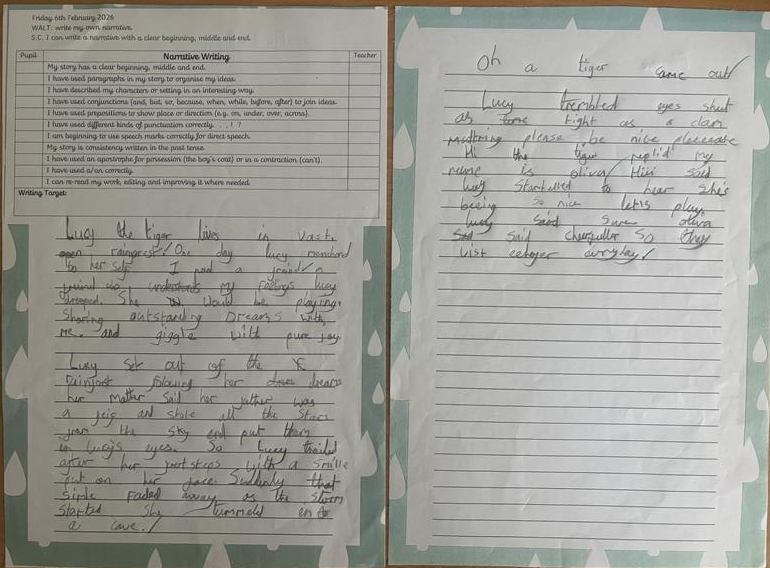 Friday 6th February 2026
WALT: write my own narrative.
S.C. I can write a narrative with a clear beginning, middle and end.
Pupil Narrative Writing Teacher
My story has a clear beginning, middle and end.
I have used paragraphs in my story to organise my ideas.
I have described my characters or setting in an interesting way.
I have used conjunctions (and, but, so, because, when, while, before, after) to join ideas.
I have used prepositions to show place or direction (e.g. on, under, over, across).
I have used different kinds of punctuation correctly. . , ! ?
I am beginning to use speech marks correctly for direct speech.
My story is consistency written in the past tense.
I have used an apostrophe for possession (the boy's coat) or in a contraction (can't).
I have used a/an correctly.
I can re-read my work, editing and improving it where needed.
Writing Target:
Lucy the tiger lives in vast,
One day lucy
to her self I a
my feelings lucy
She would be playing,
Sharing outstanding Dreams with
me. and giggle with pure joy
Lucy set out of the
her dream
her Mother Said her father was
a and stole all the Stars
from the Sky and put them
in lucy's eyes. So Lucy trailed
after her footsteps with a Smile
put on her face. Suddenly that
faded away as the storm
Started She in to
a cave.
Oh a tiger came out
Lucy trembled eyes shut
as tight as a clam
please be nice
Hi the tiger my
name is oliva Hiii said
lucy to hear She's
being so nice lets play
lucy said Sure oliva
said So they